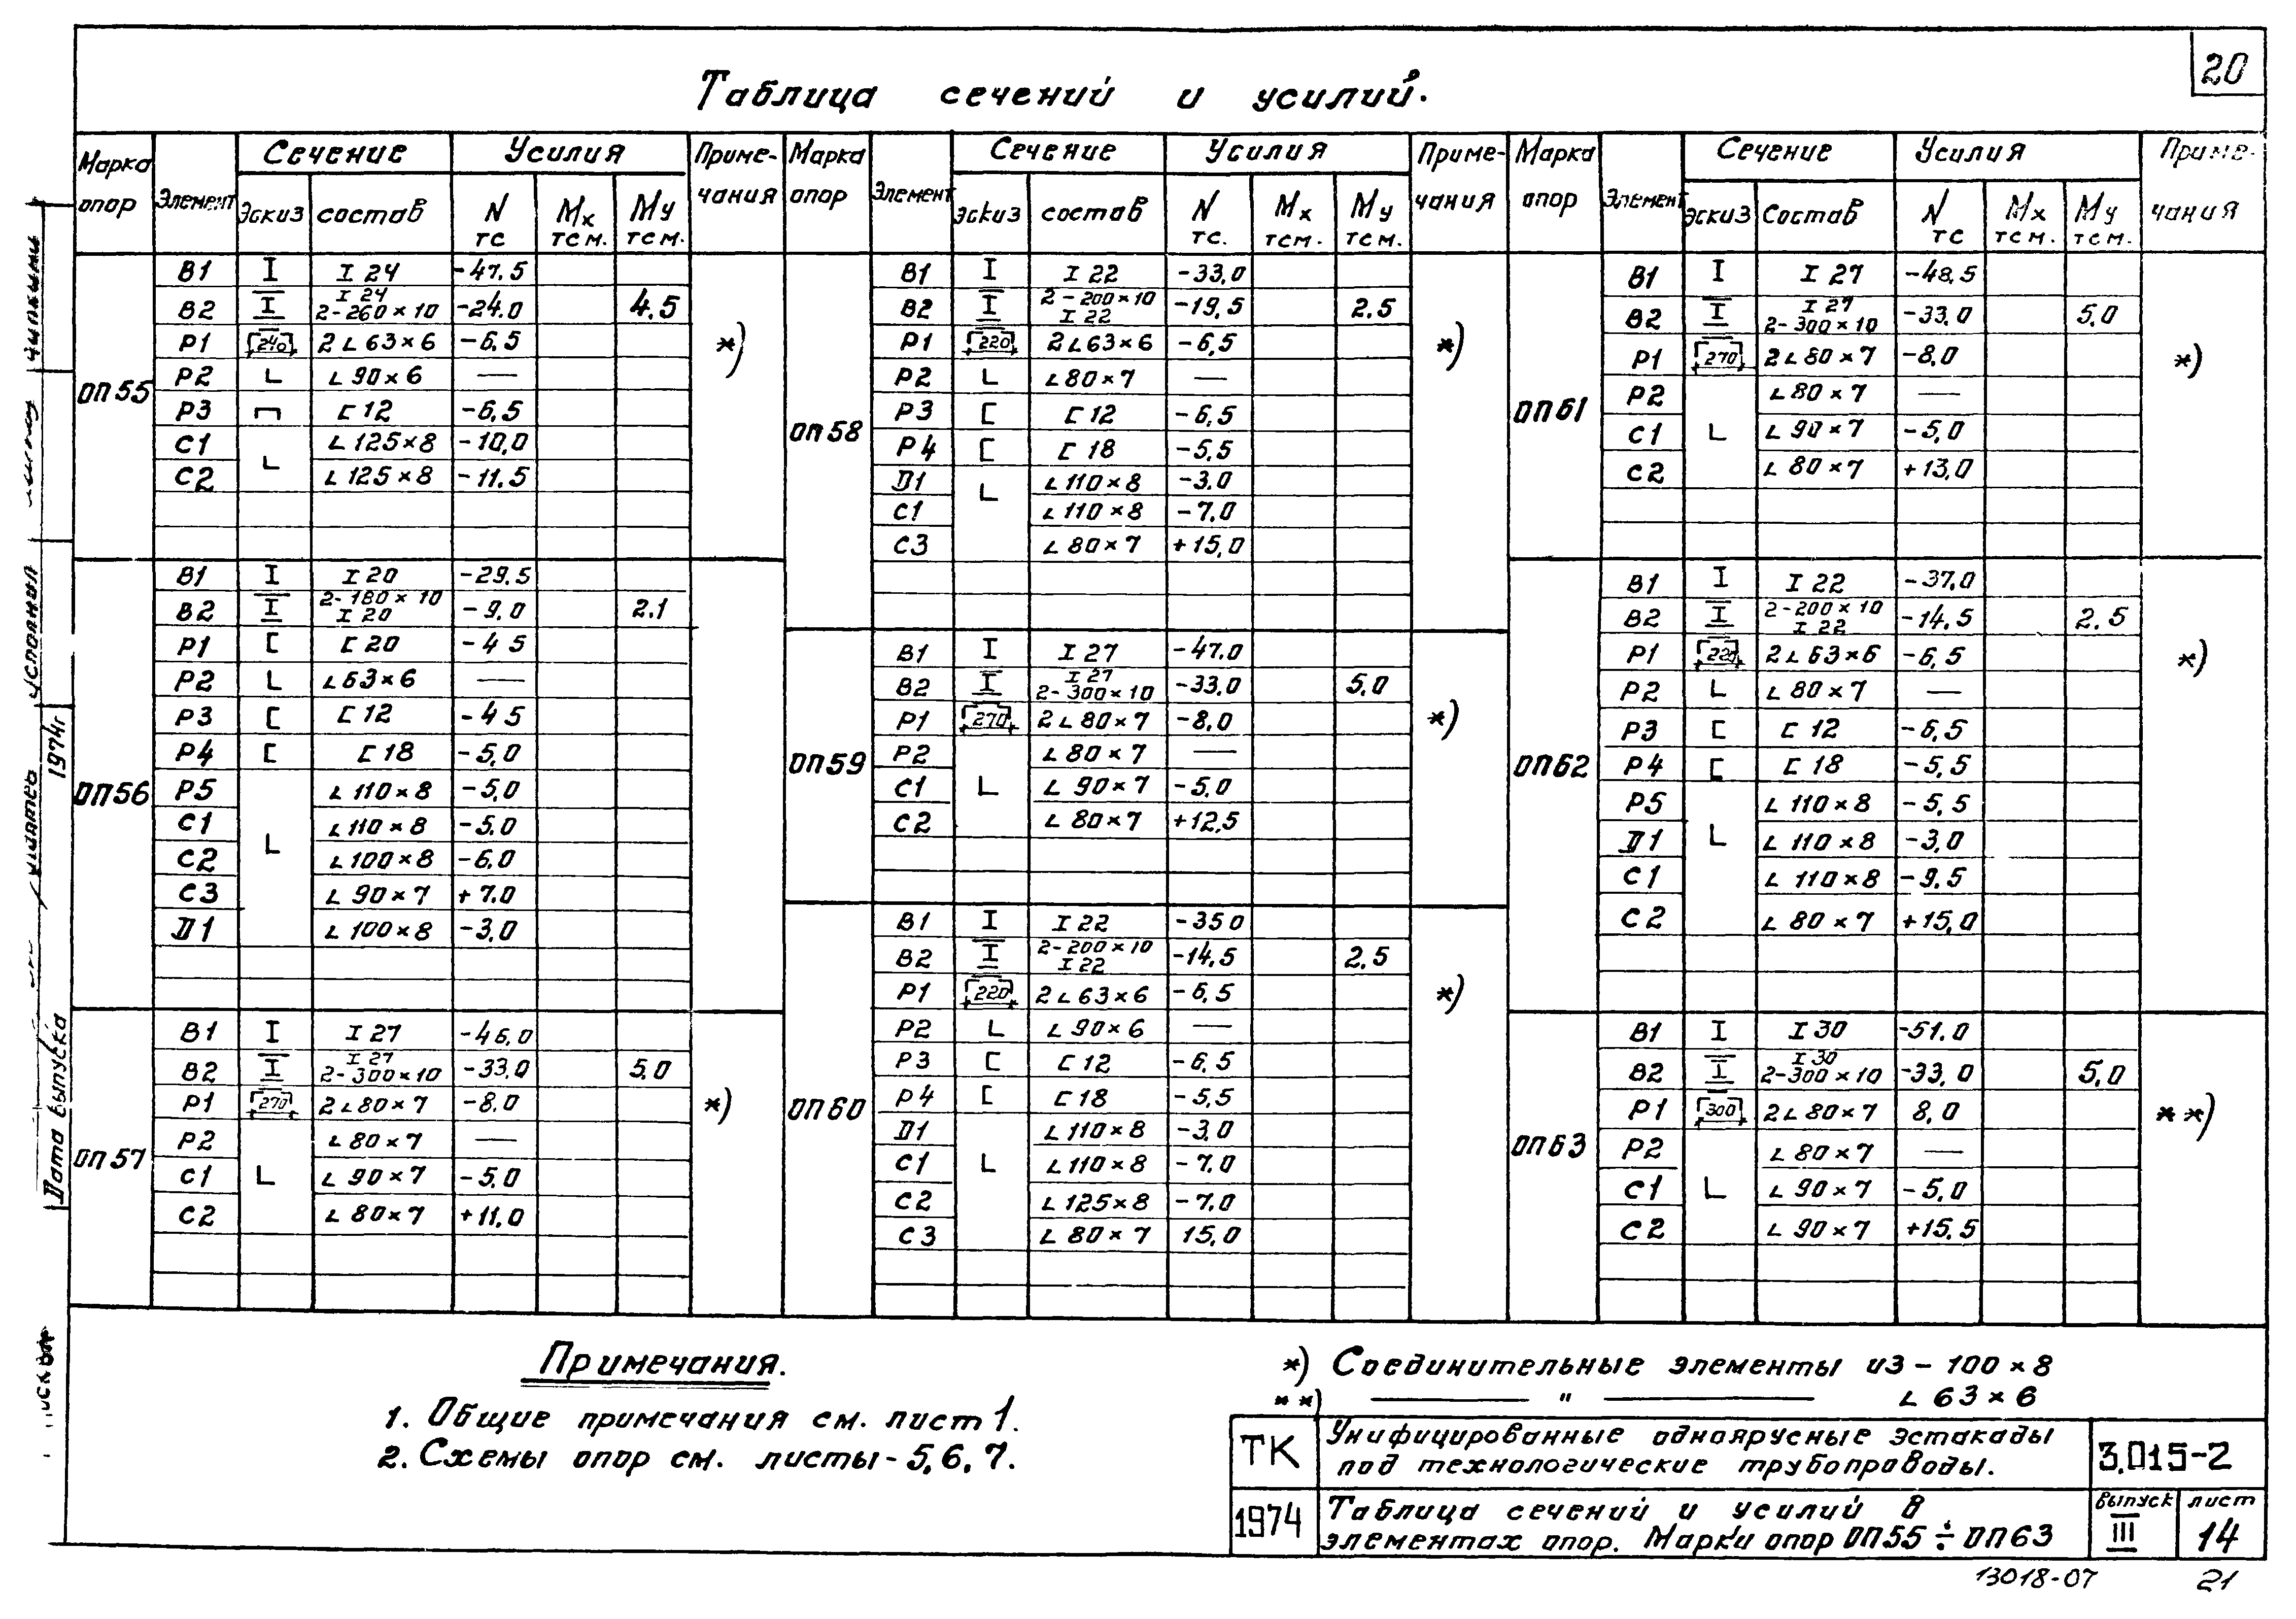 20
Таблица сечений и усилий.
Марка опор | Элемент | Сечение | Усилия | Примечания
эскиз | состав | N тс | Mx тсм. | My тсм.
ОП55
В1 I I 24 -47.5
В2 I I 24 2-260×10 -24.0 4.5
Р1 240 2∟63×6 -6.5 *)
Р2 ∟ ∟90×6 —
Р3 [ [ 12 -6.5
С1 ∟ ∟125×8 -10,0
С2 ∟125×8 -11.5
ОП56
В1 I I 20 -29.5
В2 I 2-180×10 I 20 -9.0 2.1
Р1 [ [ 20 -4 5
Р2 ∟ ∟63×6 —
Р3 [ [ 12 -4 5
Р4 [ [ 18 -5,0
Р5 ∟ ∟110×8 -5,0
С1 ∟110×8 -5.0
С2 ∟100×8 -6.0
С3 ∟90×7 +7.0
Д1 ∟100×8 -3,0
ОП57
В1 I I 27 -46,0
В2 I I 27 2-300×10 -33,0 5,0
Р1 270 2∟80×7 -8,0 *)
Р2 ∟80×7 —
С1 ∟ ∟90×7 -5,0
С2 ∟80×7 +11.0
Марка опор | Элемент | Сечение | Усилия | Примечания
эскиз | состав | N тс. | Mx тсм. | My тсм.
ОП58
В1 I I 22 -33,0
В2 I 2-200×10 I 22 -19,5 2.5
Р1 220 2∟63×6 -6,5 *)
Р2 ∟ ∟80×7 —
Р3 [ [ 12 -6,5
Р4 [ [ 18 -5.5
Д1 ∟ ∟110×8 -3.0
С1 ∟110×8 -7.0
С3 ∟80×7 +15,0
ОП59
В1 I I 27 -47.0
В2 I I 27 2-300×10 -33,0 5.0
Р1 270 2∟80×7 -8,0 *)
Р2 ∟80×7 —
С1 ∟ ∟90×7 -5.0
С2 ∟80×7 +12,5
ОП60
В1 I I 22 -35 0
В2 I 2-200×10 I 22 -14,5 2,5
Р1 220 2∟63×6 -6,5 *)
Р2 ∟ ∟90×6 —
Р3 [ [ 12 -6,5
Р4 [ [ 18 -5,5
Д1 ∟110×8 -3,0
С1 ∟ ∟110×8 -7.0
С2 ∟125×8 -7,0
С3 ∟80×7 15,0
Марка опор | Элемент | Сечение | Усилия | Примечания
эскиз | Состав | N тс | Mx тсм. | My тсм.
ОП61
В1 I I 27 -48,5
В2 I I 27 2-300×10 -33.0 5,0
Р1 270 2∟80×7 -8,0 *)
Р2 ∟80×7 —
С1 ∟ ∟90×7 -5,0
С2 ∟80×7 +13,0
ОП62
В1 I I 22 -37,0
В2 I 2-200×10 I 22 -14,5 2.5
Р1 220 2∟63×6 -6,5 *)
Р2 ∟ ∟80×7 —
Р3 [ [ 12 -6,5
Р4 [ [ 18 -5,5
Р5 ∟110×8 -5,5
Д1 ∟ ∟110×8 -3,0
С1 ∟110×8 -9,5
С2 ∟80×7 +15,0
ОП63
В1 I I 30 -51.0
В2 I I 30 2-300×10 -33,0 5,0
Р1 300 2∟80×7 8,0 **)
Р2 ∟80×7 —
С1 ∟ ∟90×7 -5,0
С2 ∟90×7 +15,5
Примечания.
1. Общие примечания см. лист 1.
2. Схемы опор см. листы-5,6,7.
*) Соединительные элементы из – 100×8
**) —— " —— ∟63×6
ТК
Унифицированные одноярусные эстакады
под технологические трубопроводы.
3.015-2
1974
Таблица сечений и усилий в
элементах опор. Марки опор ОП55÷ОП63
выпуск III
лист 14
13018-07
21
Дата выпуска
1974г